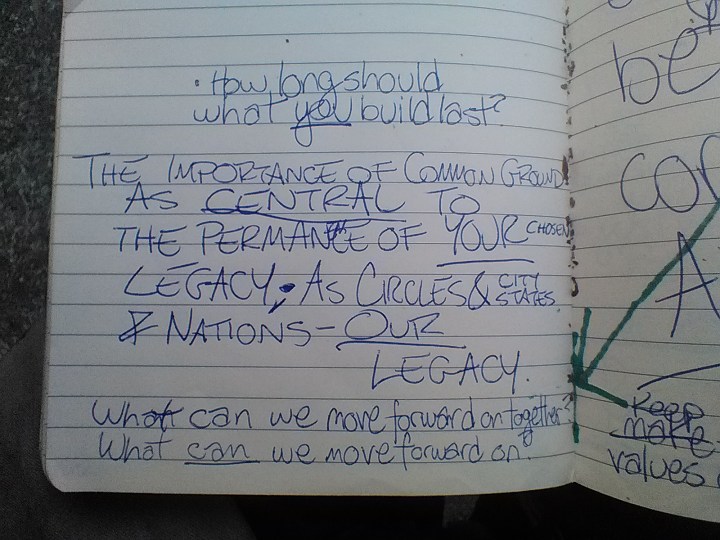 • How long should
what you build last?
THE IMPORTANCE OF COMMON GROUND
AS CENTRAL TO
THE PERMANENCE OF YOUR CHOSEN
LEGACY; AS CIRCLES & CITY STATES
& NATIONS - OUR
LEGACY.
What can we move forward on together?
What can we move forward on?
be
con
A
Keep
make
values